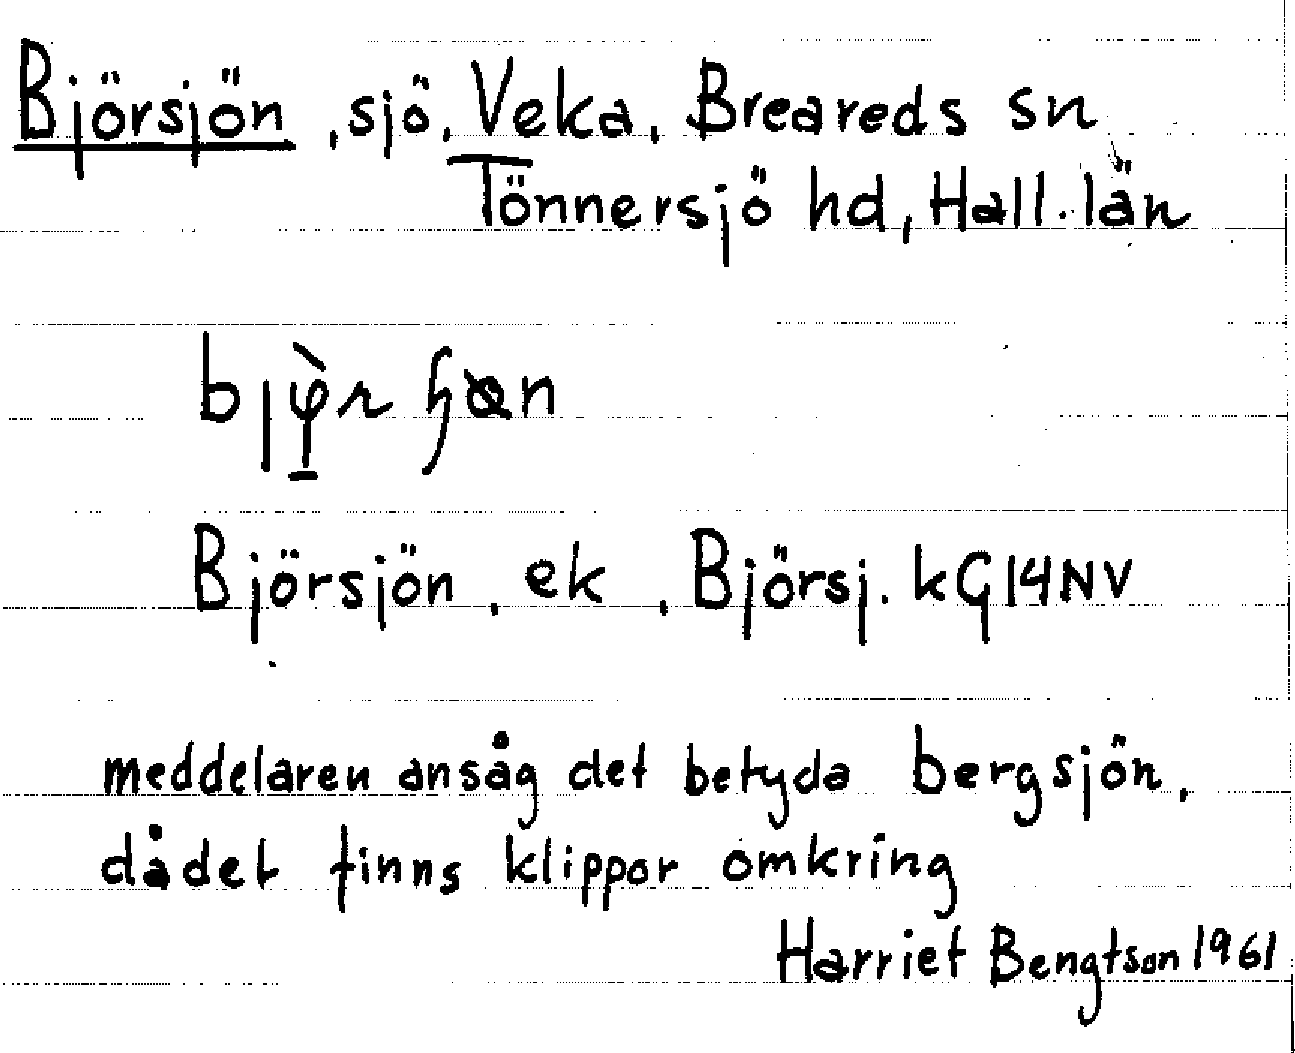 Björsjön, sjö, Veka, Breareds sn
Tönnersjö hd, Hall. län
Björsjön, ek, Björsj. kG14NV
meddelaren ansåg det betyda bergsjön,
dådet finns klippor omkring
Harriet Bengtson 1961